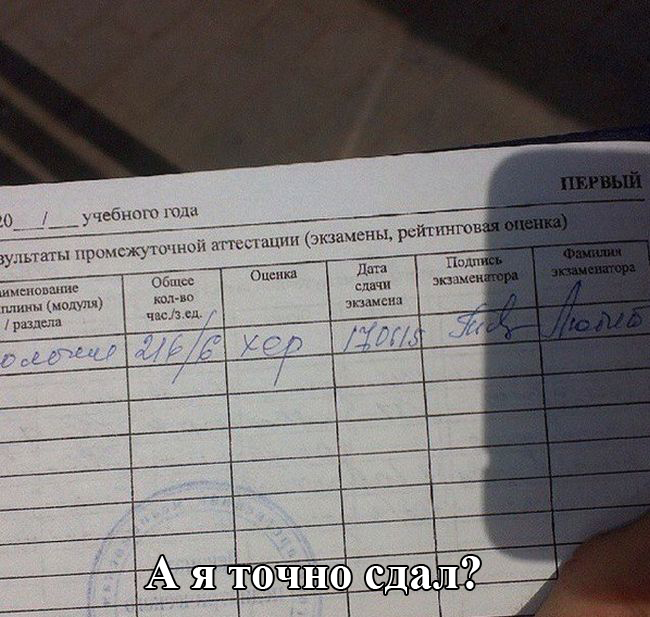 ПЕРВЫЙ
20__/___учебного года
зультаты промежуточной аттестации (экзамены, рейтинговая оценка)
именование
плины (модуля)
/ раздела
Общее
кол-во
час./з.ед.
Оценка
Дата
сдачи
экзамена
Подпись
экзаменатора
Фамилия
экзаменатора
216/6 хор 170615
А я точно сдал?